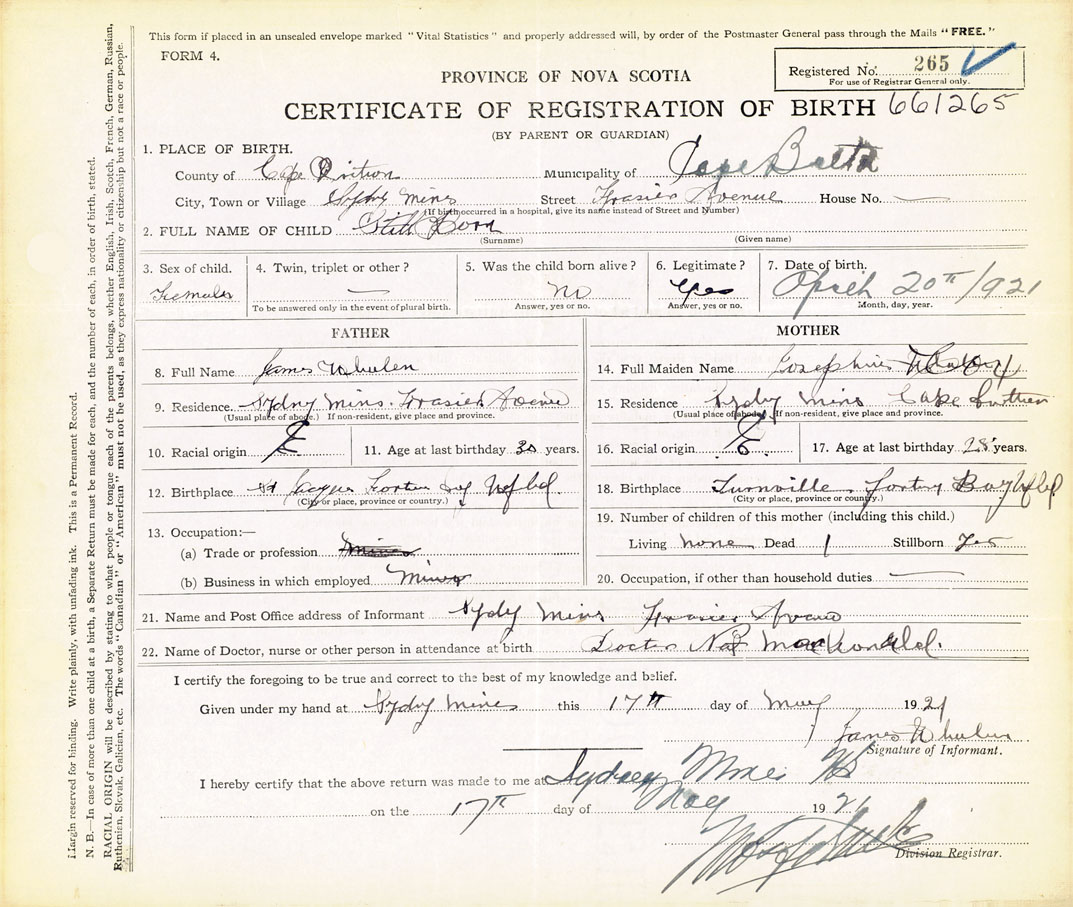 This form if placed in an unsealed envelope marked "Vital Statistics" and properly addressed will, by order of the Postmaster General pass through the Mails "FREE."
FORM 4.
Registered No. 265
For use of Registrar General only.
PROVINCE OF NOVA SCOTIA
CERTIFICATE OF REGISTRATION OF BIRTH 661265
(BY PARENT OR GUARDIAN)
1. PLACE OF BIRTH.
County of Cape Brition Municipality of Cape
City, Town or Village Sydny mins Street Frasier Avenue House No.
(If birth occurred in a hospital, give its name instead of Street and Number)
2. FULL NAME OF CHILD Still Born
(Surname) (Given name)
3. Sex of child. 4. Twin, triplet or other? 5. Was the child born alive? 6. Legitimate? 7. Date of birth.
Female — no yes April 20th/1921
To be answered only in the event of plural birth. Answer, yes or no. Answer, yes or no. Month, day, year.
FATHER
8. Full Name James Whelen
9. Residence. Sydny mins. Frasier Avenue
(Usual place of abode.) If non-resident, give place and province.
10. Racial origin E 11. Age at last birthday 30 years.
12. Birthplace Nfld.
(City or place, province or country.)
13. Occupation:—
(a) Trade or profession
(b) Business in which employed Miner
MOTHER
14. Full Maiden Name Josephine
15. Residence Sydny mins Cape
(Usual place of abode.) If non-resident, give place and province.
16. Racial origin E. 17. Age at last birthday 28 years.
18. Birthplace Bay Nfld
(City or place, province or country.)
19. Number of children of this mother (including this child.)
Living none Dead 1 Stillborn Yes
20. Occupation, if other than household duties —
21. Name and Post Office address of Informant Sydy mins Frasier Avenue
22. Name of Doctor, nurse or other person in attendance at birth Doctor MacDonald.
I certify the foregoing to be true and correct to the best of my knowledge and belief.
Given under my hand at Sydny mines this 17th day of May 1921
James Whelen
Signature of Informant.
I hereby certify that the above return was made to me at Sydney Mines NS
on the 17th day of May 1921
Division Registrar.
Margin reserved for binding. Write plainly, with unfading ink. This is a Permanent Record.
N. B.—In case of more than one child at a birth, a Separate Return must be made for each, and the number of each, in order of birth, stated.
RACIAL ORIGIN will be described by stating to what people or tongue each of the parents belongs, whether English, Irish, Scotch, French, German, Russian,
Ruthenian, Slovak, Galician, etc. The words "Canadian" or "American" must not be used, as they express nationality or citizenship but not a race or people.